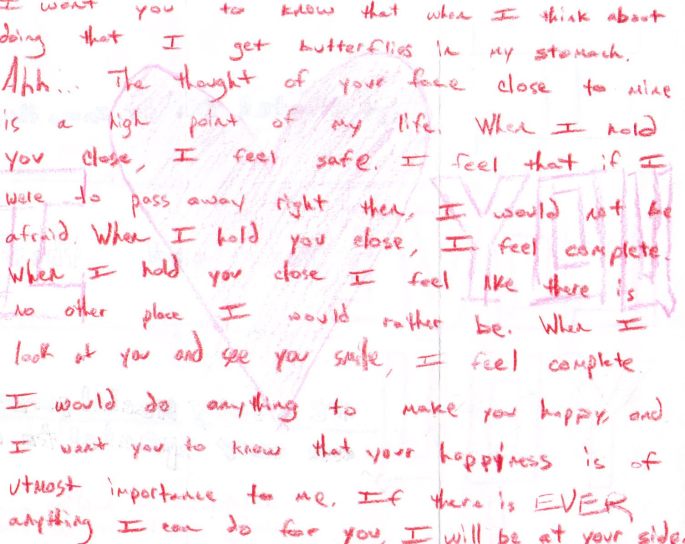 I want you to know that when I think about
doing that I get butterflies in my stomach.
Ahh... The thought of your face close to mine
is a high point of my life. When I hold
you close, I feel safe. I feel that if I
were to pass away right then, I would not be
afraid. When I hold you close, I feel complete.
When I hold you close I feel like there is
no other place I would rather be. When I
look at you and see you smile, I feel complete.
I would do anything to make you happy, and
I want you to know that your happiness is of
utmost importance to me. If there is EVER
anything I can do for you, I will be at your side.
I YOU